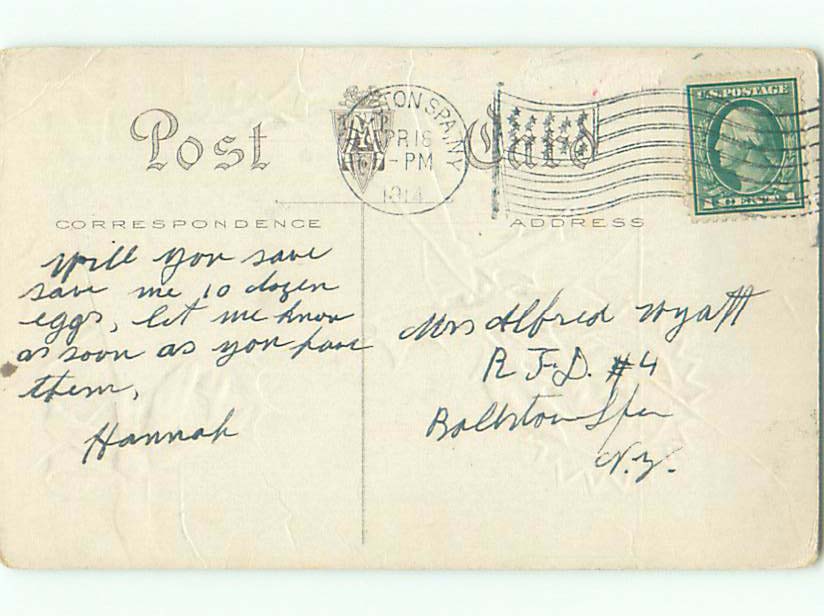 Post Card
TON SPA, N.Y.
PR 16
-PM
1914
U.S. POSTAGE
1 CENT 1
CORRESPONDENCE
ADDRESS
Will you save
save me 10 dozen
eggs, let me know
as soon as you have
them,
Hannah
Mrs Alfred Wyatt
R.F.D. #4
Ballston Spa
N.Y.